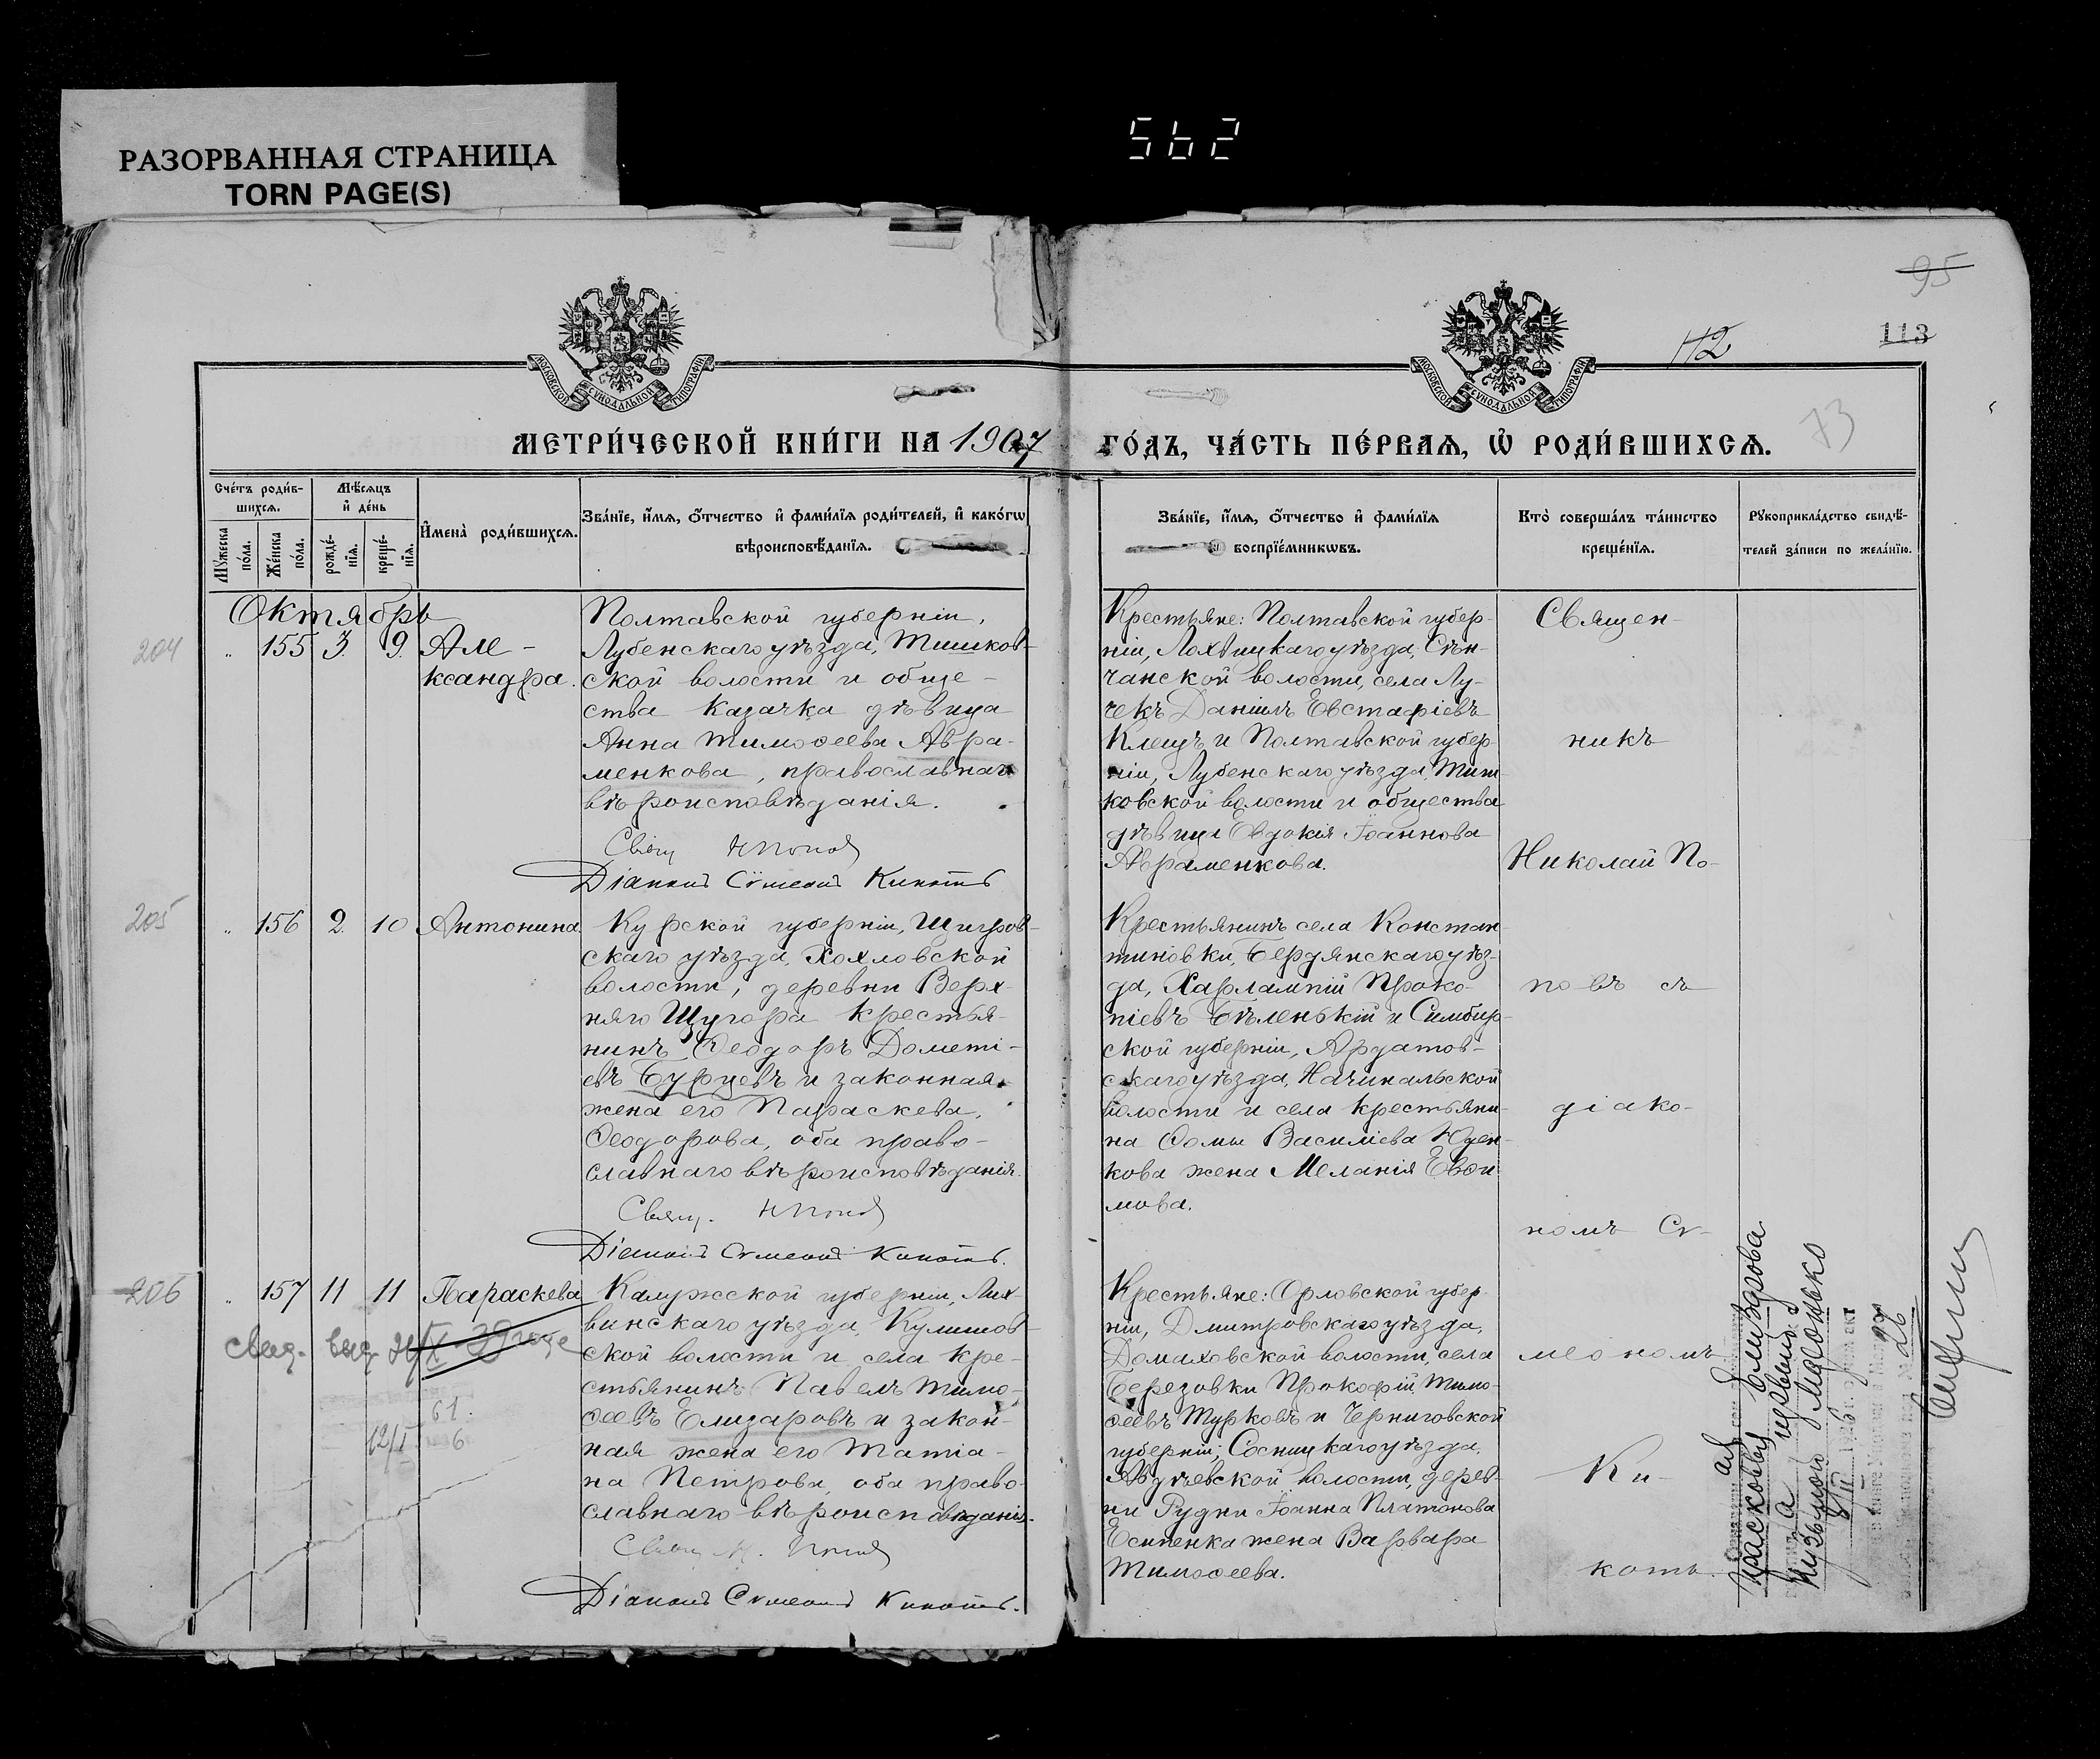 РАЗОРВАННАЯ СТРАНИЦА
TORN PAGE(S)
562
95
113
112
73
МОСКОВСКОЙ СѴНОДАЛЬНОЙ ТИПОГРАФІИ
МОСКОВСКОЙ СѴНОДАЛЬНОЙ ТИПОГРАФІИ
МЕТРИ́ЧЕСКОЙ КНИ́ГИ НА 1907
ГО́ДЪ, ЧА́СТЬ ПЕ́РВАѦ, Ѡ РОДИ́ВШИХСѦ.
Сче́тъ роди́в-
шихсѧ.
Мѣ́сѧцъ
и҆ де́нь
Мꙋ́жеска
по́ла.
Же́нска
по́ла.
рожде́-
нїѧ.
креще́-
нїѧ.
И҆мена̀ роди́вшихсѧ.
Зва́нїе, и҆́мѧ, ѻ҆́тчество и҆ фами́лїѧ роди́телей, и҆ како́гѡ
вѣроисповѣ́данїѧ.
Зва́нїе, и҆́мѧ, ѻ҆́тчество и҆ фами́лїѧ
воспрїе́мникѡвъ.
Кто̀ соверша́лъ та́инство
креще́нїѧ.
Рꙋкоприкла́дство свидѣ́-
телей за́писи по жела́нїю.
Октябрь
204
" 155 3. 9. Але-
ксандра.
Полтавской губерніи,
Лубенскаго уѣзда, Тишков-
ской волости и обще-
ства казачка дѣвица
Анна Тимоѳеева Авра-
менкова, православнаго
вѣроисповѣданія.
Свящ. Н Попов
Діаконъ Сѵмеонъ Кикоть
Крестьяне: Полтавской губер-
ніи, Лохвицкаго уѣзда, Сѣн-
чанской волости, села Лу-
чекъ Даніилъ Евстафіевъ
Клещъ и Полтавской губер-
ніи, Лубенскаго уѣзда, Тиш-
ковской волости и общества
дѣвица Евдокія Іоаннова
Авраменкова.
Священ-
никъ
Николай По-
205
" 156 2. 10 Антонина
Курской губерніи, Щигров-
скаго уѣзда, Хохловской
волости, деревни Верх-
няго Щугора крестья-
нинъ Ѳеодоръ Домети-
евъ Бурцевъ и законная
жена его Параскева
Ѳеодорова, оба право-
славнаго вѣроисповѣданія.
Свящ. Н Попов
Діаконъ Сѵмеонъ Кикоть.
Крестьянинъ села Констан-
тиновки, Бердянскаго уѣз-
да, Харлампій Проко-
піевъ Бѣленькій и Симбир-
ской губерніи, Ардатов-
скаго уѣзда, Начинальской
волости и села крестьяни-
на Ѳомы Василіева Юден-
кова жена Меланія Евѳи-
мова.
повъ съ
діако-
номъ Сѵ-
206
" 157 11 11 Параскева
свид. выд.
61
12/I 6
Калужской губерніи, Лих-
винскаго уѣзда, Кулешов-
ской волости и села кре-
стьянинъ Павелъ Тимо-
ѳеевъ Елизаровъ и закон-
ная жена его Татіа-
на Петрова, оба право-
славнаго вѣроисповѣданія.
Свящ Н. Попов
Діаконъ Сѵмеонъ Кикоть.
Крестьяне: Орловской губер-
ніи, Дмитровскаго уѣзда,
Домаховской волости, села
Березовки Прокофій Тимо-
ѳеевъ Турковъ и Черниговской
губерніи, Сосницкаго уѣзда,
Авдѣевской волости, дерев-
ни Рудни Іоанна Платонова
Есипенка жена Варвара
Тимоѳеева.
меономъ
Ки-
коть.
Елизарова